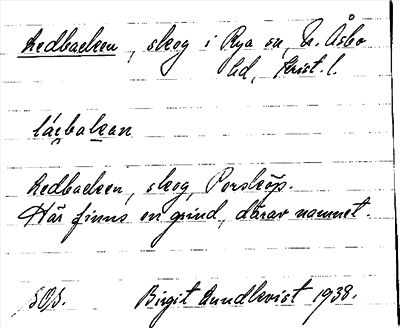 Ledbacken, skog i Rya sn, N. Åsbo
hd, Krist. l.
Ledbacken, skog, Porsköp.
Här finns en grind, därav namnet.
Birgit Lundkvist 1938.